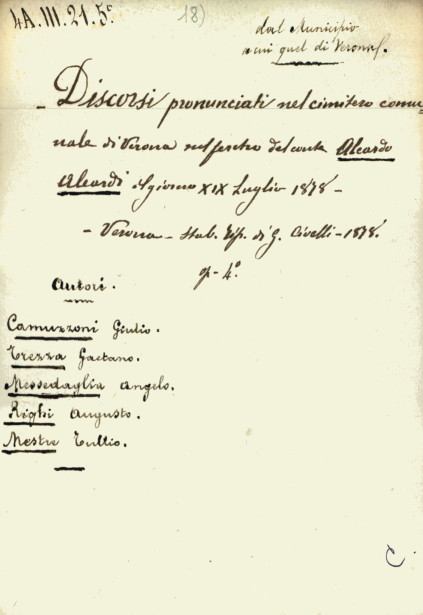 4A.III.21.5º
18)
dal Municipio
qui quel di Verona.
- Discorsi pronunciati nel cimitero comu=
nale di Verona sul feretro del conte Aleardo
Aleardi il giorno XIX Luglio 1878 -
- Verona - Stab. Tip. di G. Civelli - 1878.
4º.
Autori.
Camuzzoni Giulio.
Trezza Gaetano.
Messedaglia Angelo.
Righi Augusto.
Mestre Tullio.
C.